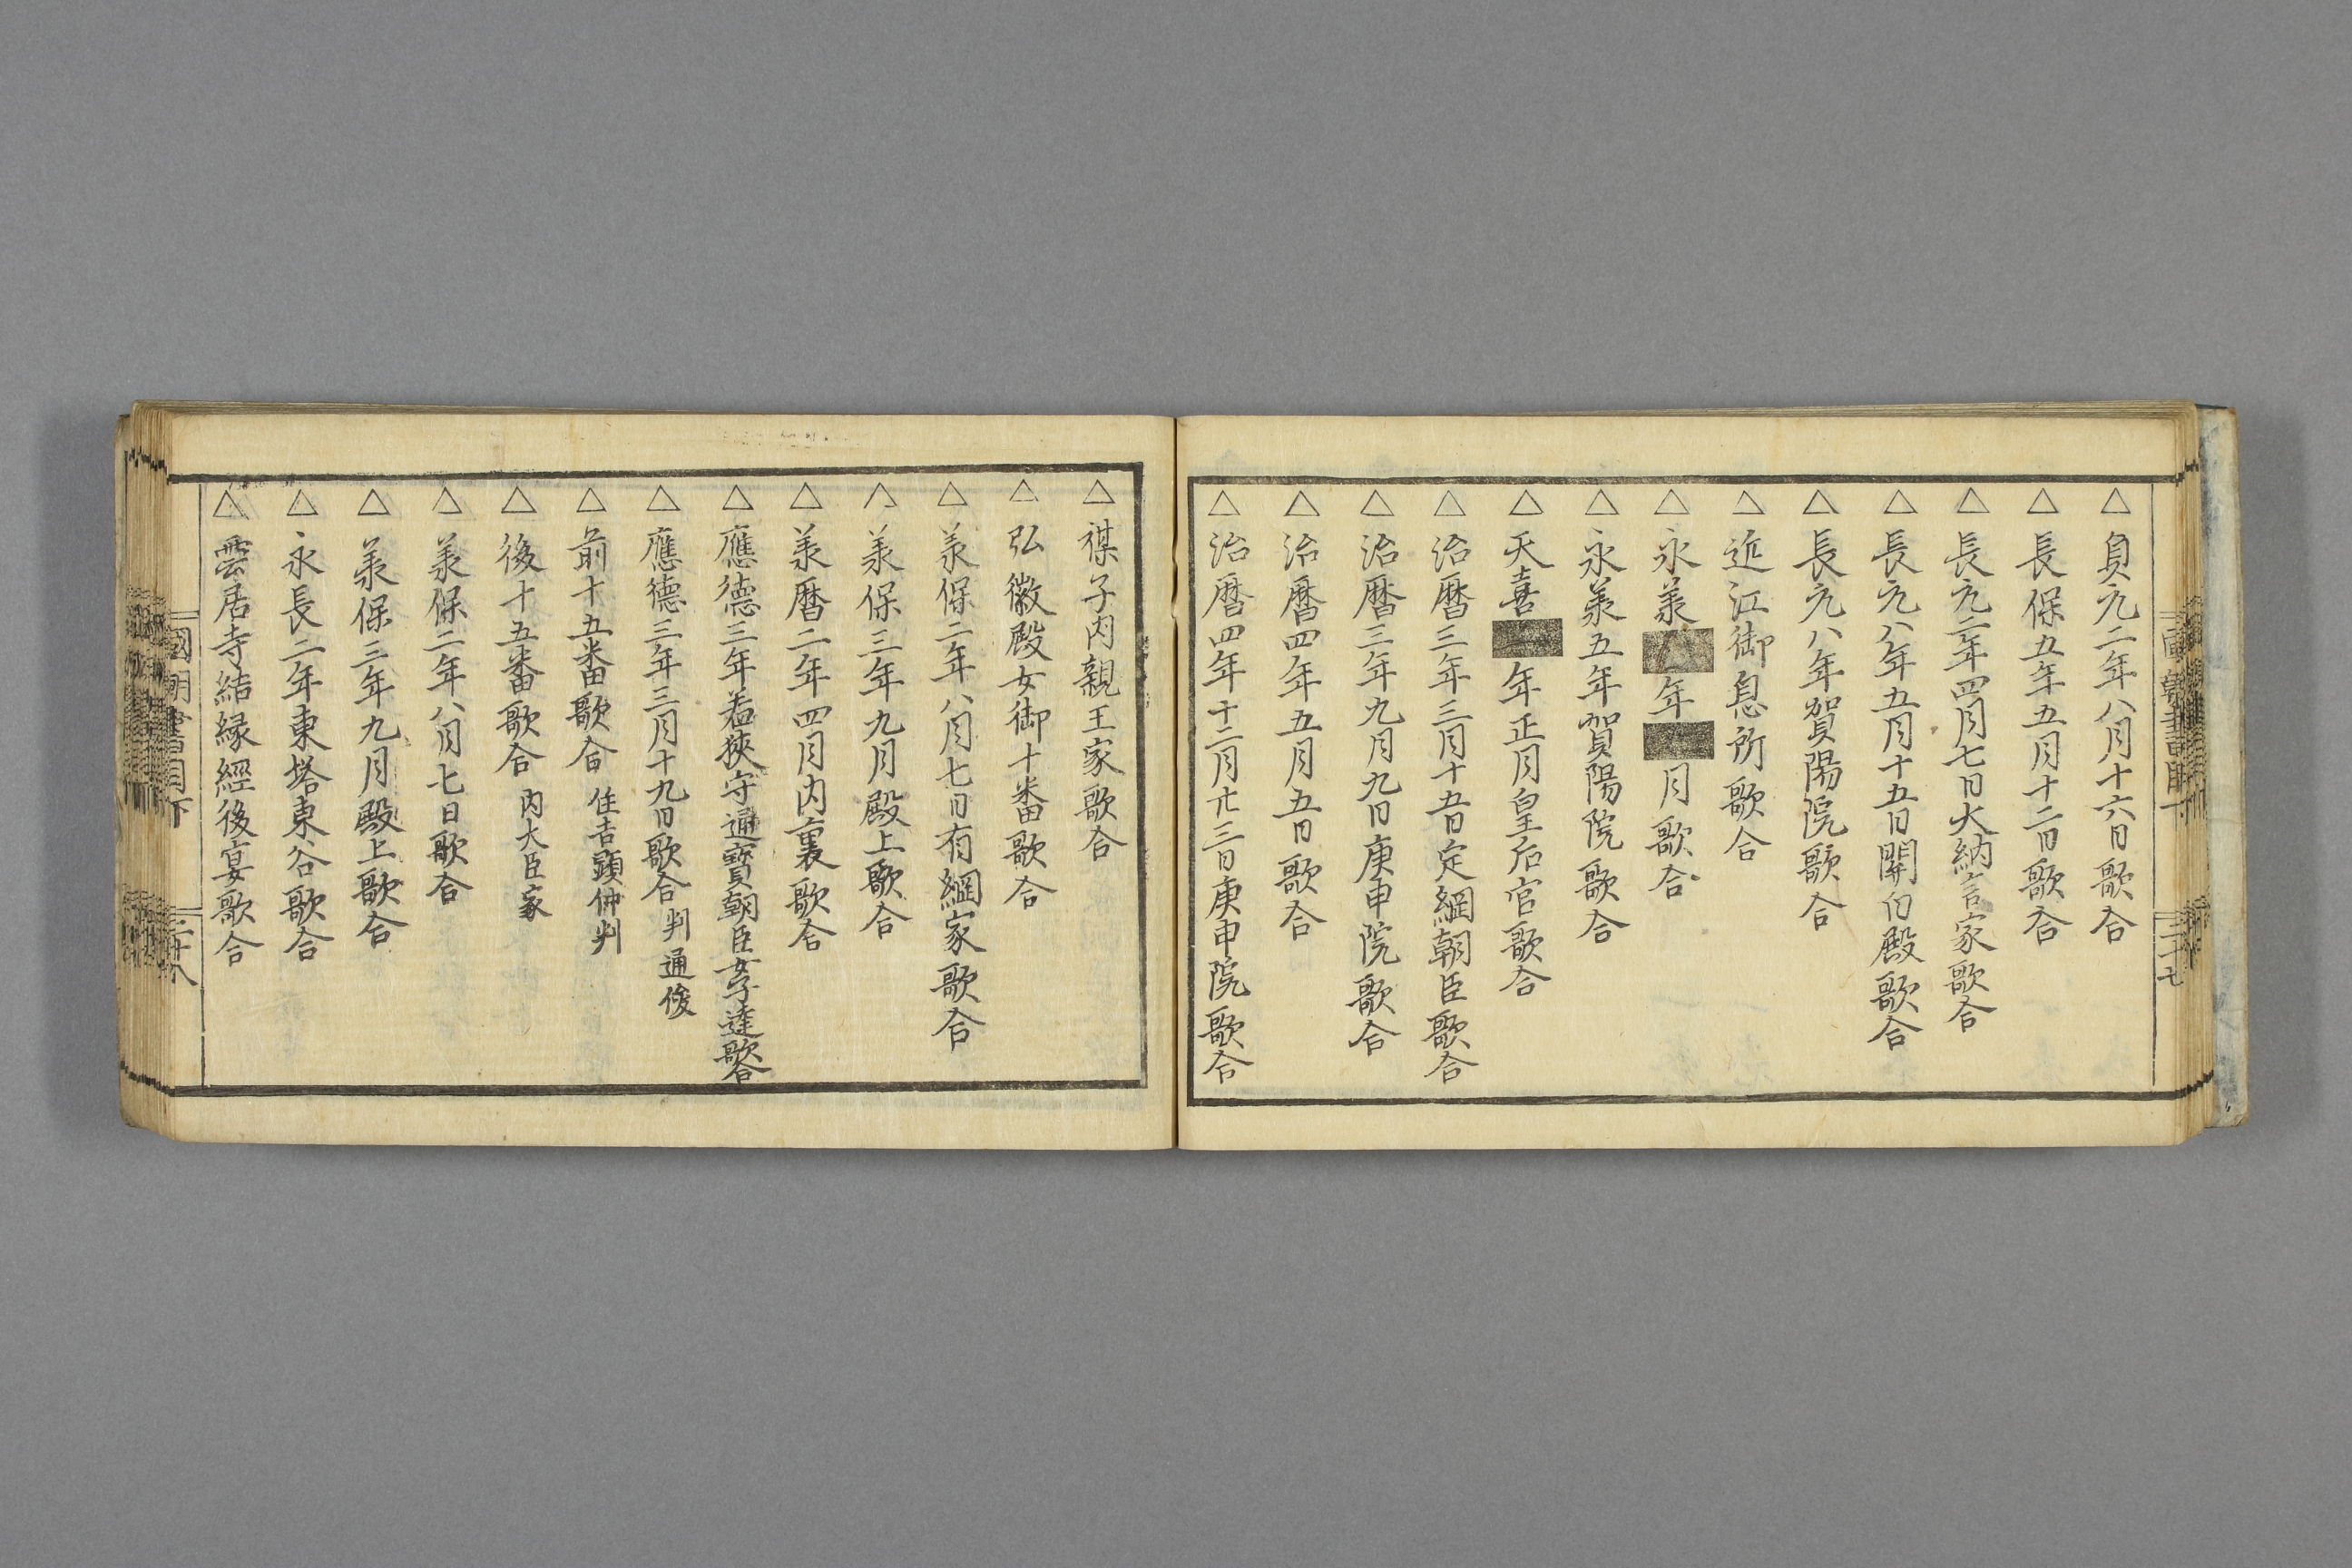 △貞元二年八月十六日歌合
△長保五年五月十二日歌合
△長元二年四月七日大納言家歌合
△長元八年五月十五日関白殿歌合
△長元八年賀陽院歌合
△近江御息所歌合
△永羕年月歌合
△永羕五年賀陽院歌合
△天喜年正月皇后宮歌合
△治暦三年三月十五日定綱朝臣歌合
△治暦三年九月九日庚申院歌合
△治暦四年五月五日歌合
△治暦四年十二月廿三日庚申院歌合
△禖子内親王家歌合
△弘徽殿女御十番歌合
△羕保二年八月七日有綱家歌合
△羕保三年九月殿上歌合
△羕暦二年四月内裏歌合
△應德三年若狭守通寳朝臣女子達歌合
△應德三年三月十九日歌合 判通俊
△前十五番歌合 住吉顕仲判
△後十五番歌合 内大臣家
△羕保二年八月七日歌合
△羕保三年九月殿上歌合
△永長二年東塔東谷歌合
△雲居寺結縁經後宴歌合
國朝書目下
三十八